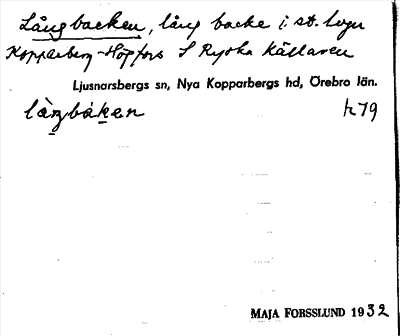 Långbacken, lång backe i st. vägen
Kopparberg-Högfors S Ryska Källaren
Ljusnarsbergs sn, Nya Kopparbergs hd, Örebro län.
låŋbáken h79
MAJA FORSSLUND 1932